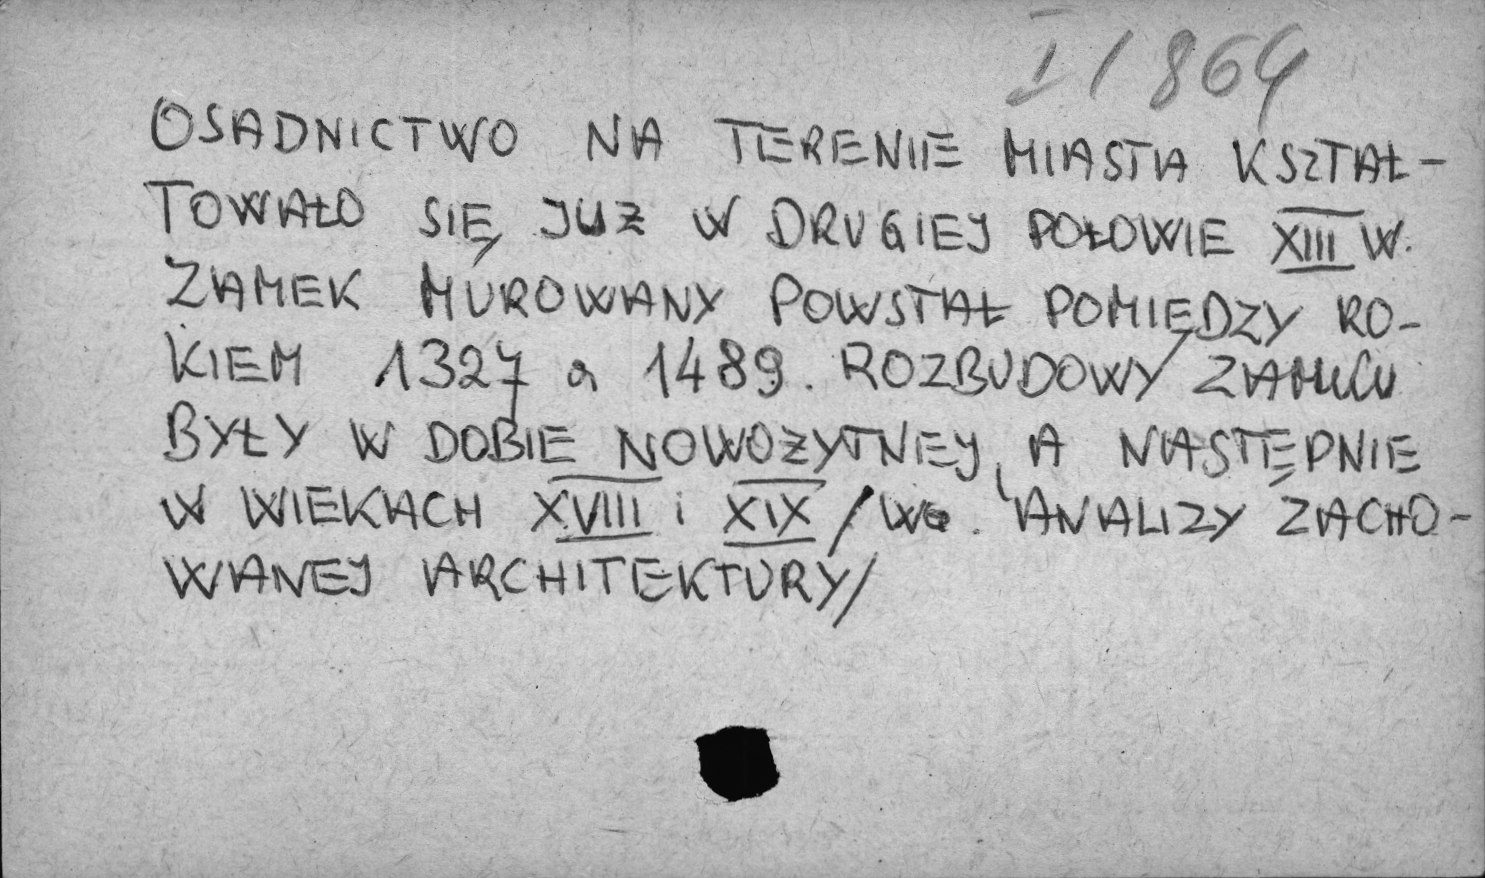 I/864
OSADNICTWO NA TERENIE MIASTA KSZTAŁ-
TOWAŁO SIĘ JUŻ W DRUGIEJ POŁOWIE XIII W.
ZAMEK MUROWANY POWSTAŁ POMIĘDZY RO-
KIEM 1327 a 1489. ROZBUDOWY ZAMKU
BYŁY W DOBIE NOWOŻYTNEJ, A NASTĘPNIE
W WIEKACH XVIII i XIX /WG. ANALIZY ZACHO-
WANEJ ARCHITEKTURY/